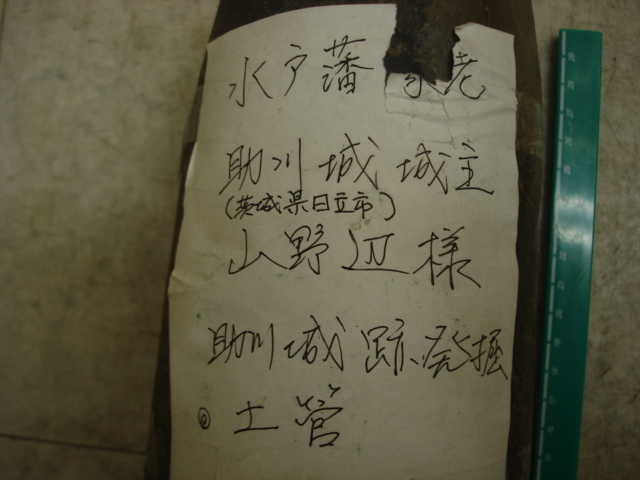 水戸藩 家老
助川城 城主
(茨城県日立市)
山野辺様
助川城跡発掘
◎土管